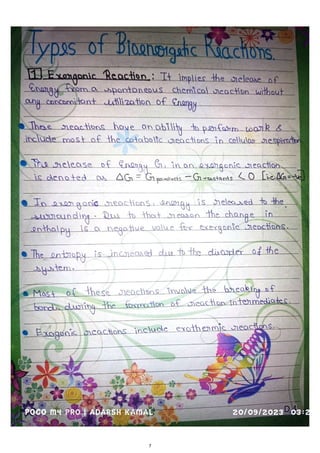 Types of Bioenergetic Reactions.
1 Exergonic Reaction: It implies the release of
Energy from a spontaneous chemical reaction without
any concomitant utilization of Energy
These reactions have an ability to perform work &
include most of the catabolic reactions in cellular respiration
The release of Energy G, in an exergonic reaction
is denoted as ΔG = G products - G reactants < 0 [i.e ΔG=-ve]
In exergonic reactions, energy is released to the
surrounding. Due to that reason the change in
enthalpy is a negative value for exergonic reactions.
The entropy is increased due to the disorder of the
system.
Most of these reactions involve the breaking of
bonds during the formation of reaction intermediates.
Exogonic reactions include exothermic reactions.
POCO M4 PRO | ADARSH KAMAL 20/09/2023 03:2
7